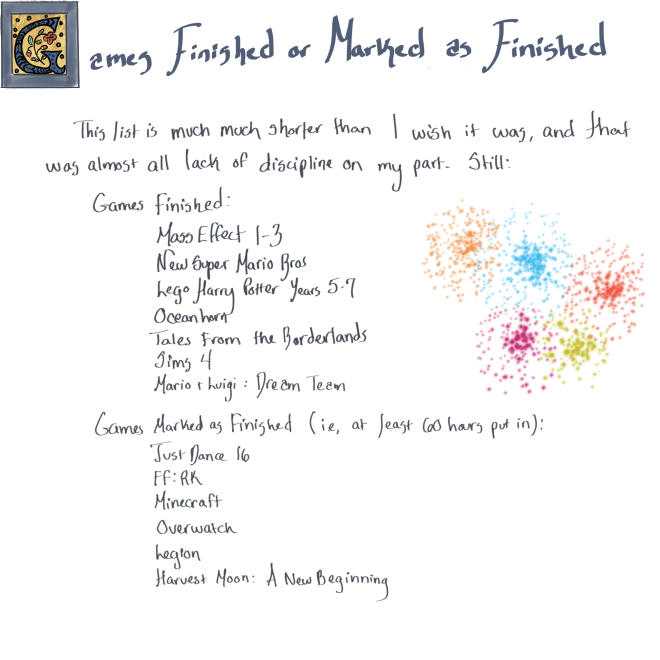 Games Finished or Marked as Finished
This list is much much shorter than I wish it was, and that
was almost all lack of discipline on my part. Still:
Games Finished:
Mass Effect 1-3
New Super Mario Bros
Lego Harry Potter Years 5-7
Oceanhorn
Tales From the Borderlands
Sims 4
Mario + Luigi: Dream Team
Games Marked as Finished (ie, at least 60 hours put in):
Just Dance 16
FF:RK
Minecraft
Overwatch
Legion
Harvest Moon: A New Beginning